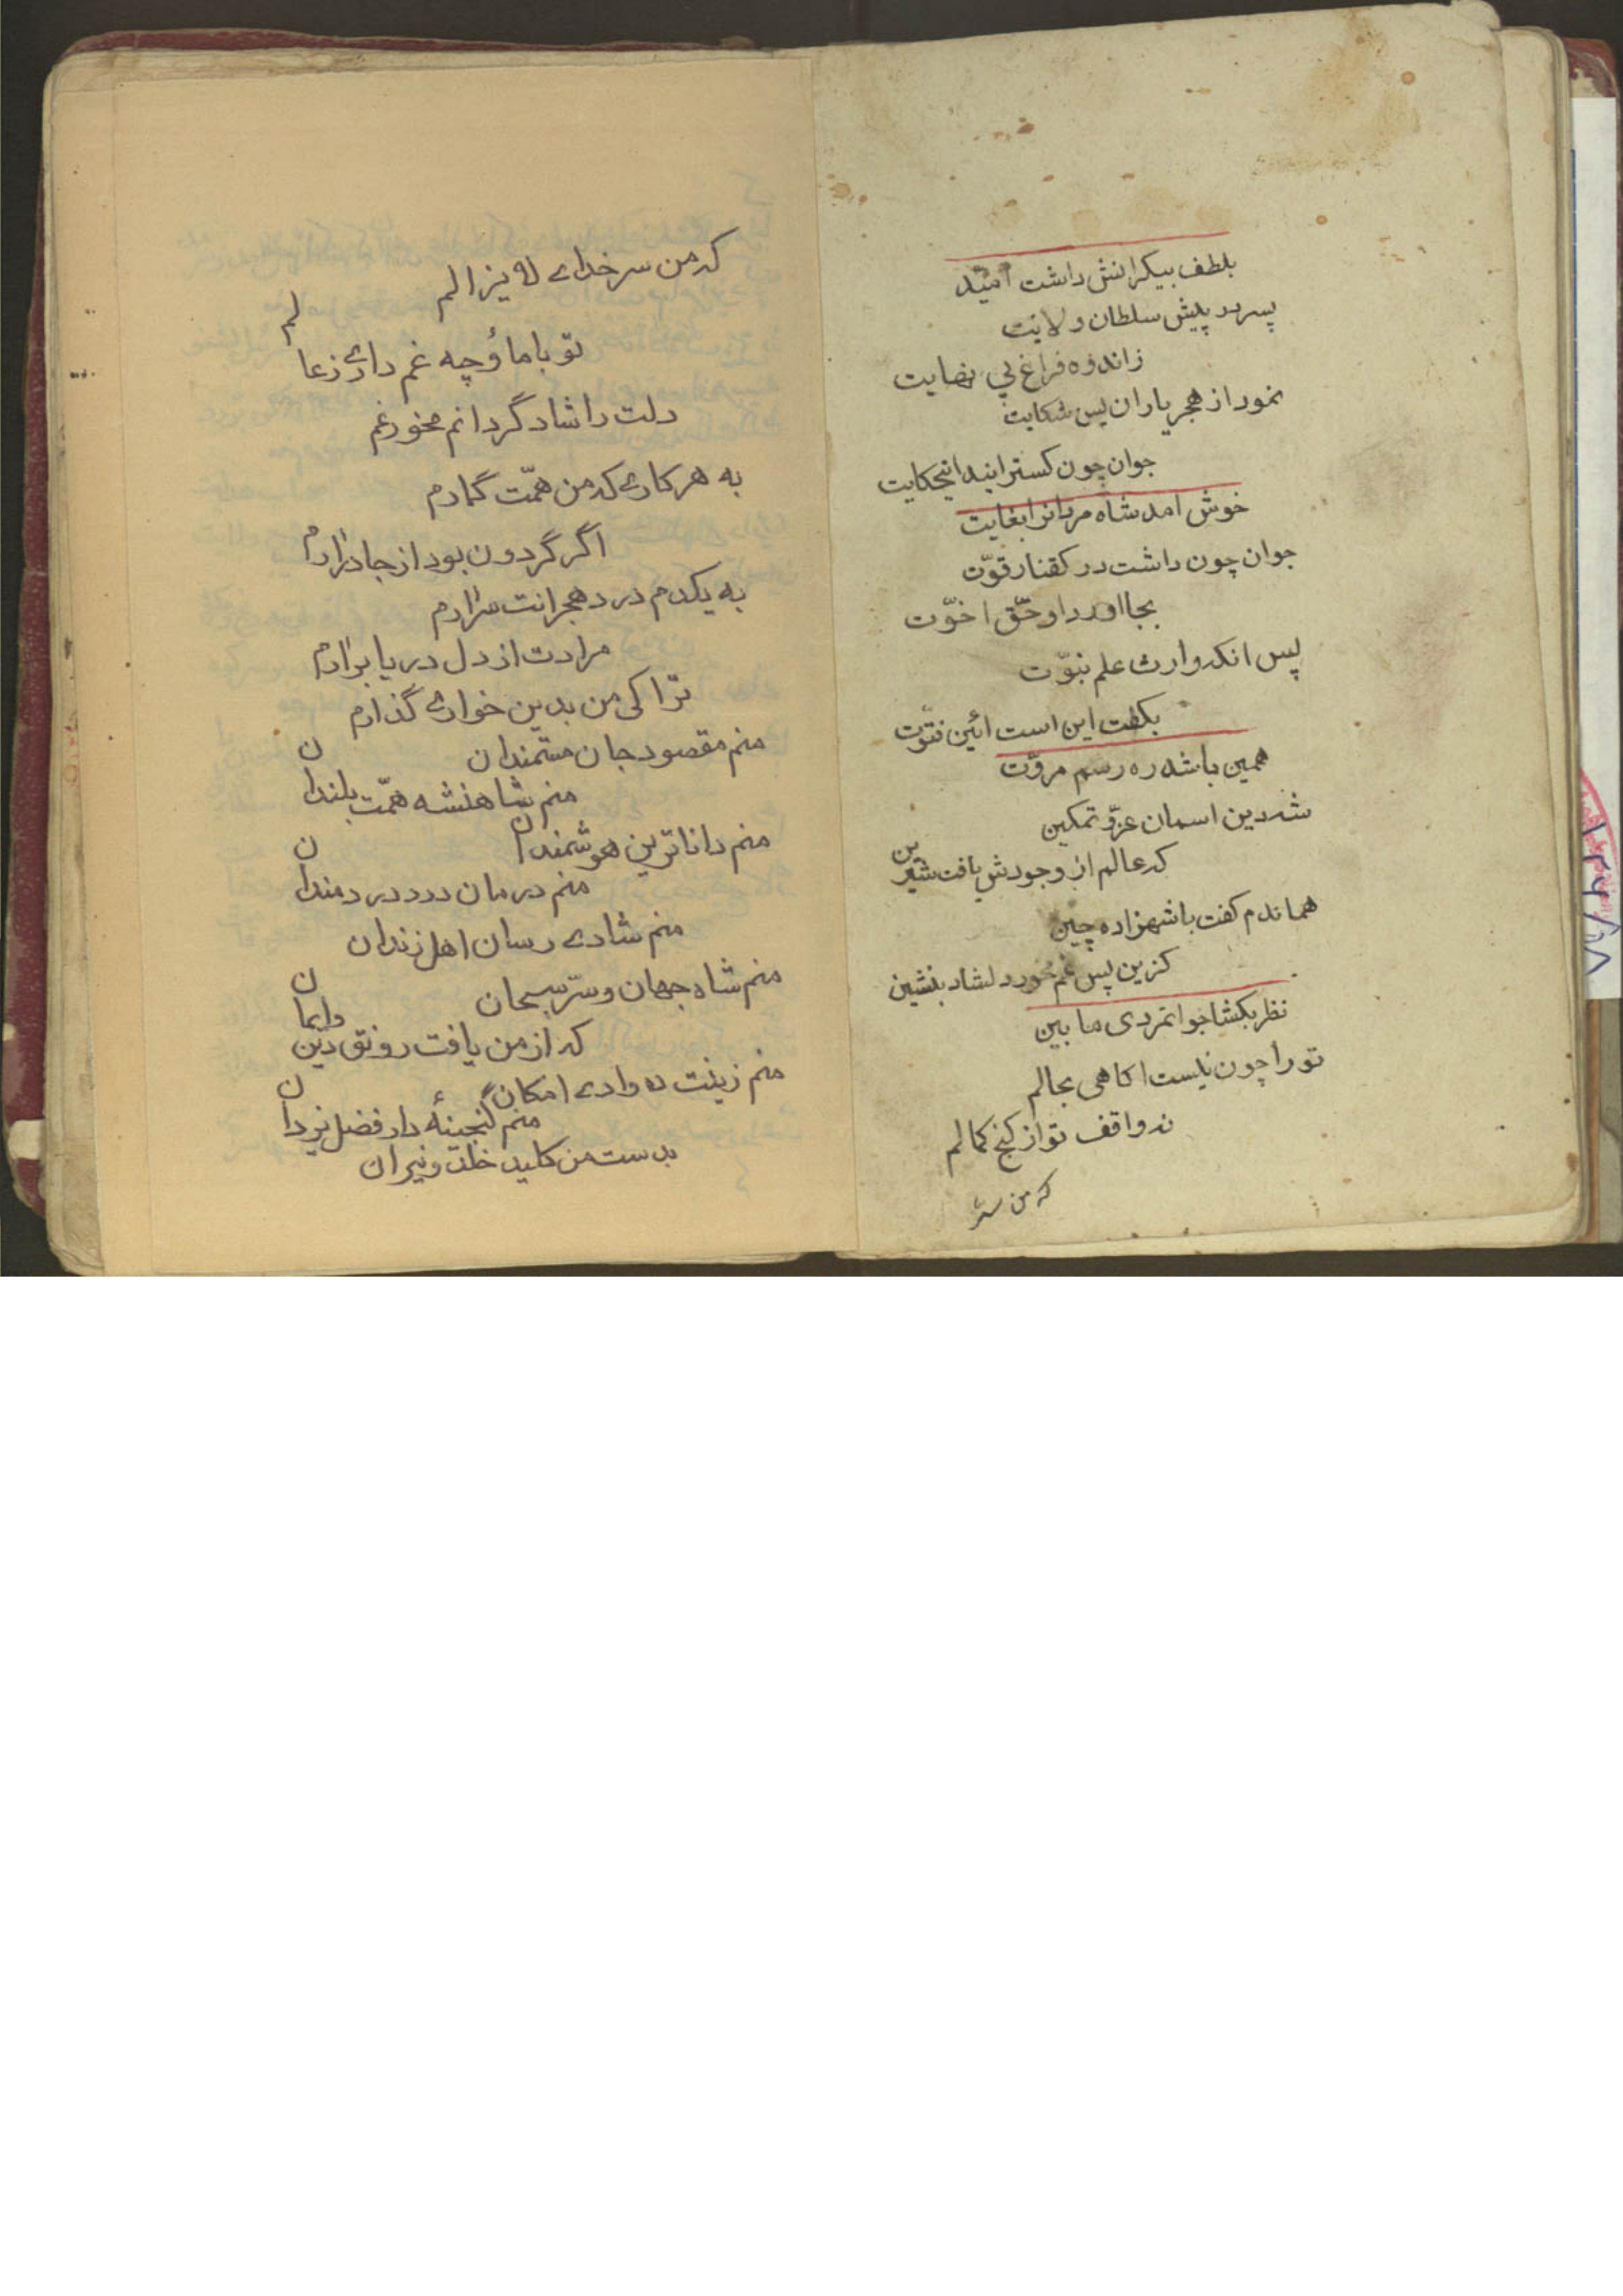 بلطف بیکرانش داشت امید
پسر در پیش سلطان ولایت
زاندوه فراغ بی نهایت
نمود از هجر یاران پس شکایت
جوان چون کسترانید اینحکایت
خوش امد شاه مردانرا بغایت
جوان چون داشت در کفتار قوّت
بجا اورد او حّق اخوّت
پس انکه وارث علم نبوّت
بکفت این است ائین فتوّت
همین باشد ره رسم مروّت
شه دین اسمان عزّ و تمکین
که عالم از وجودش یافت شیرین
هماندم کفت با شهزاده چین
کزین پس غم مخور دلشاد بنشین
نظر بکشا جوانمردی ما بین
تو را چون نیست اکاهی بحالم
نه واقف تو از کنج کمالم
که من سر
که من سر خدای لایزالم
تو با ما و چه غم داری زعالم
دلت را شاد گردانم مخور غم
به هر کاری که من همّت گمارم
اگر گردون بود از جا درارم
به یکدم درد هجرانت سرارم
مرادت از دل دریا برارم
ترا کی من بدین خواری گذارم
منم مقصود جان مستمندان
منم شاهنشه همّت بلندان
منم داناترین هوشمندان
منم درمان درد دردمندان
منم شادی رسان اهل زندان
منم شاه جهان و سرّ سبحان
که از من یافت رونق دین وایمان
منم زینت ده وادی امکان
منم گنجینهٔ دار فضل یزدان
بدست من کلید خلد و نیران